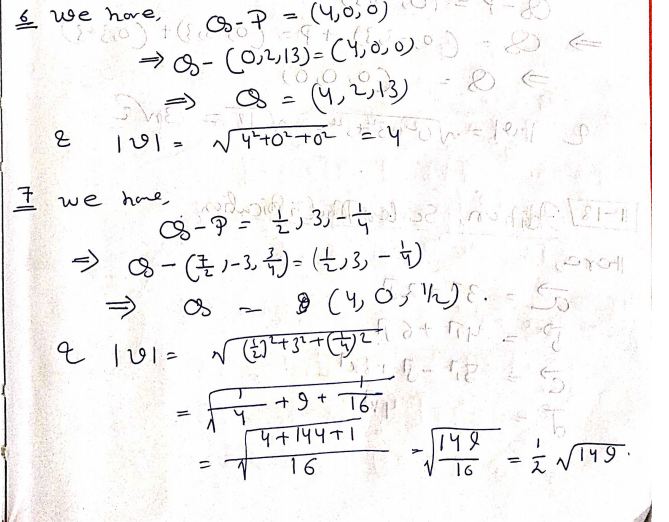 6 we have, Q-P = (4,0,0)
⇒ Q-(0,2,13)=(4,0,0)
⇒ Q = (4,2,13)
& |v| = √4²+0²+0² = 4
7 we have,
Q-P = 1/2, 3, -1/4
⇒ Q-(7/2,-3,3/4)=(1/2,3,-1/4)
⇒ Q = (4,0,1/2).
& |v| = √(1/2)²+3²+(1/4)²
= √1/4+9+1/16
= √4+144+1/16 = √149/16 = 1/2 √149.